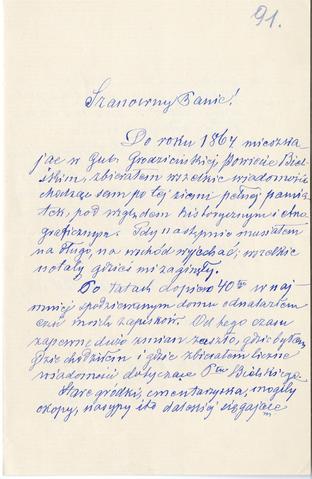 91.
Szanowny Panie!
Do roku 1864 mieszka
jąc w Gub. Grodzieńskiej Powiecie Biel
skim, zbierałem wszelkie wiadomości
chodząc sam po tej ziemi pełnej pamią
tek, pod względem historycznym i etno
graficznym. Gdy następnie musiałem
na długo, na wschód wyjechać; wszelkie
notaty gdzieś mi zaginęły.
Po latach dopiero 40tu w naj
mniej spodziewanym domu odnalazłem
moich zapisków. Od tego czasu
zapewne dużo zmian zaszło, gdzie byłem,
gdzie chodziłem i gdzie zbierałem liczne
wiadomości dotyczące Ptu Bielskiego.
Stare gródki, cmentarzyska, mogiły
okopy, nasypy i to dalekiej sięgające